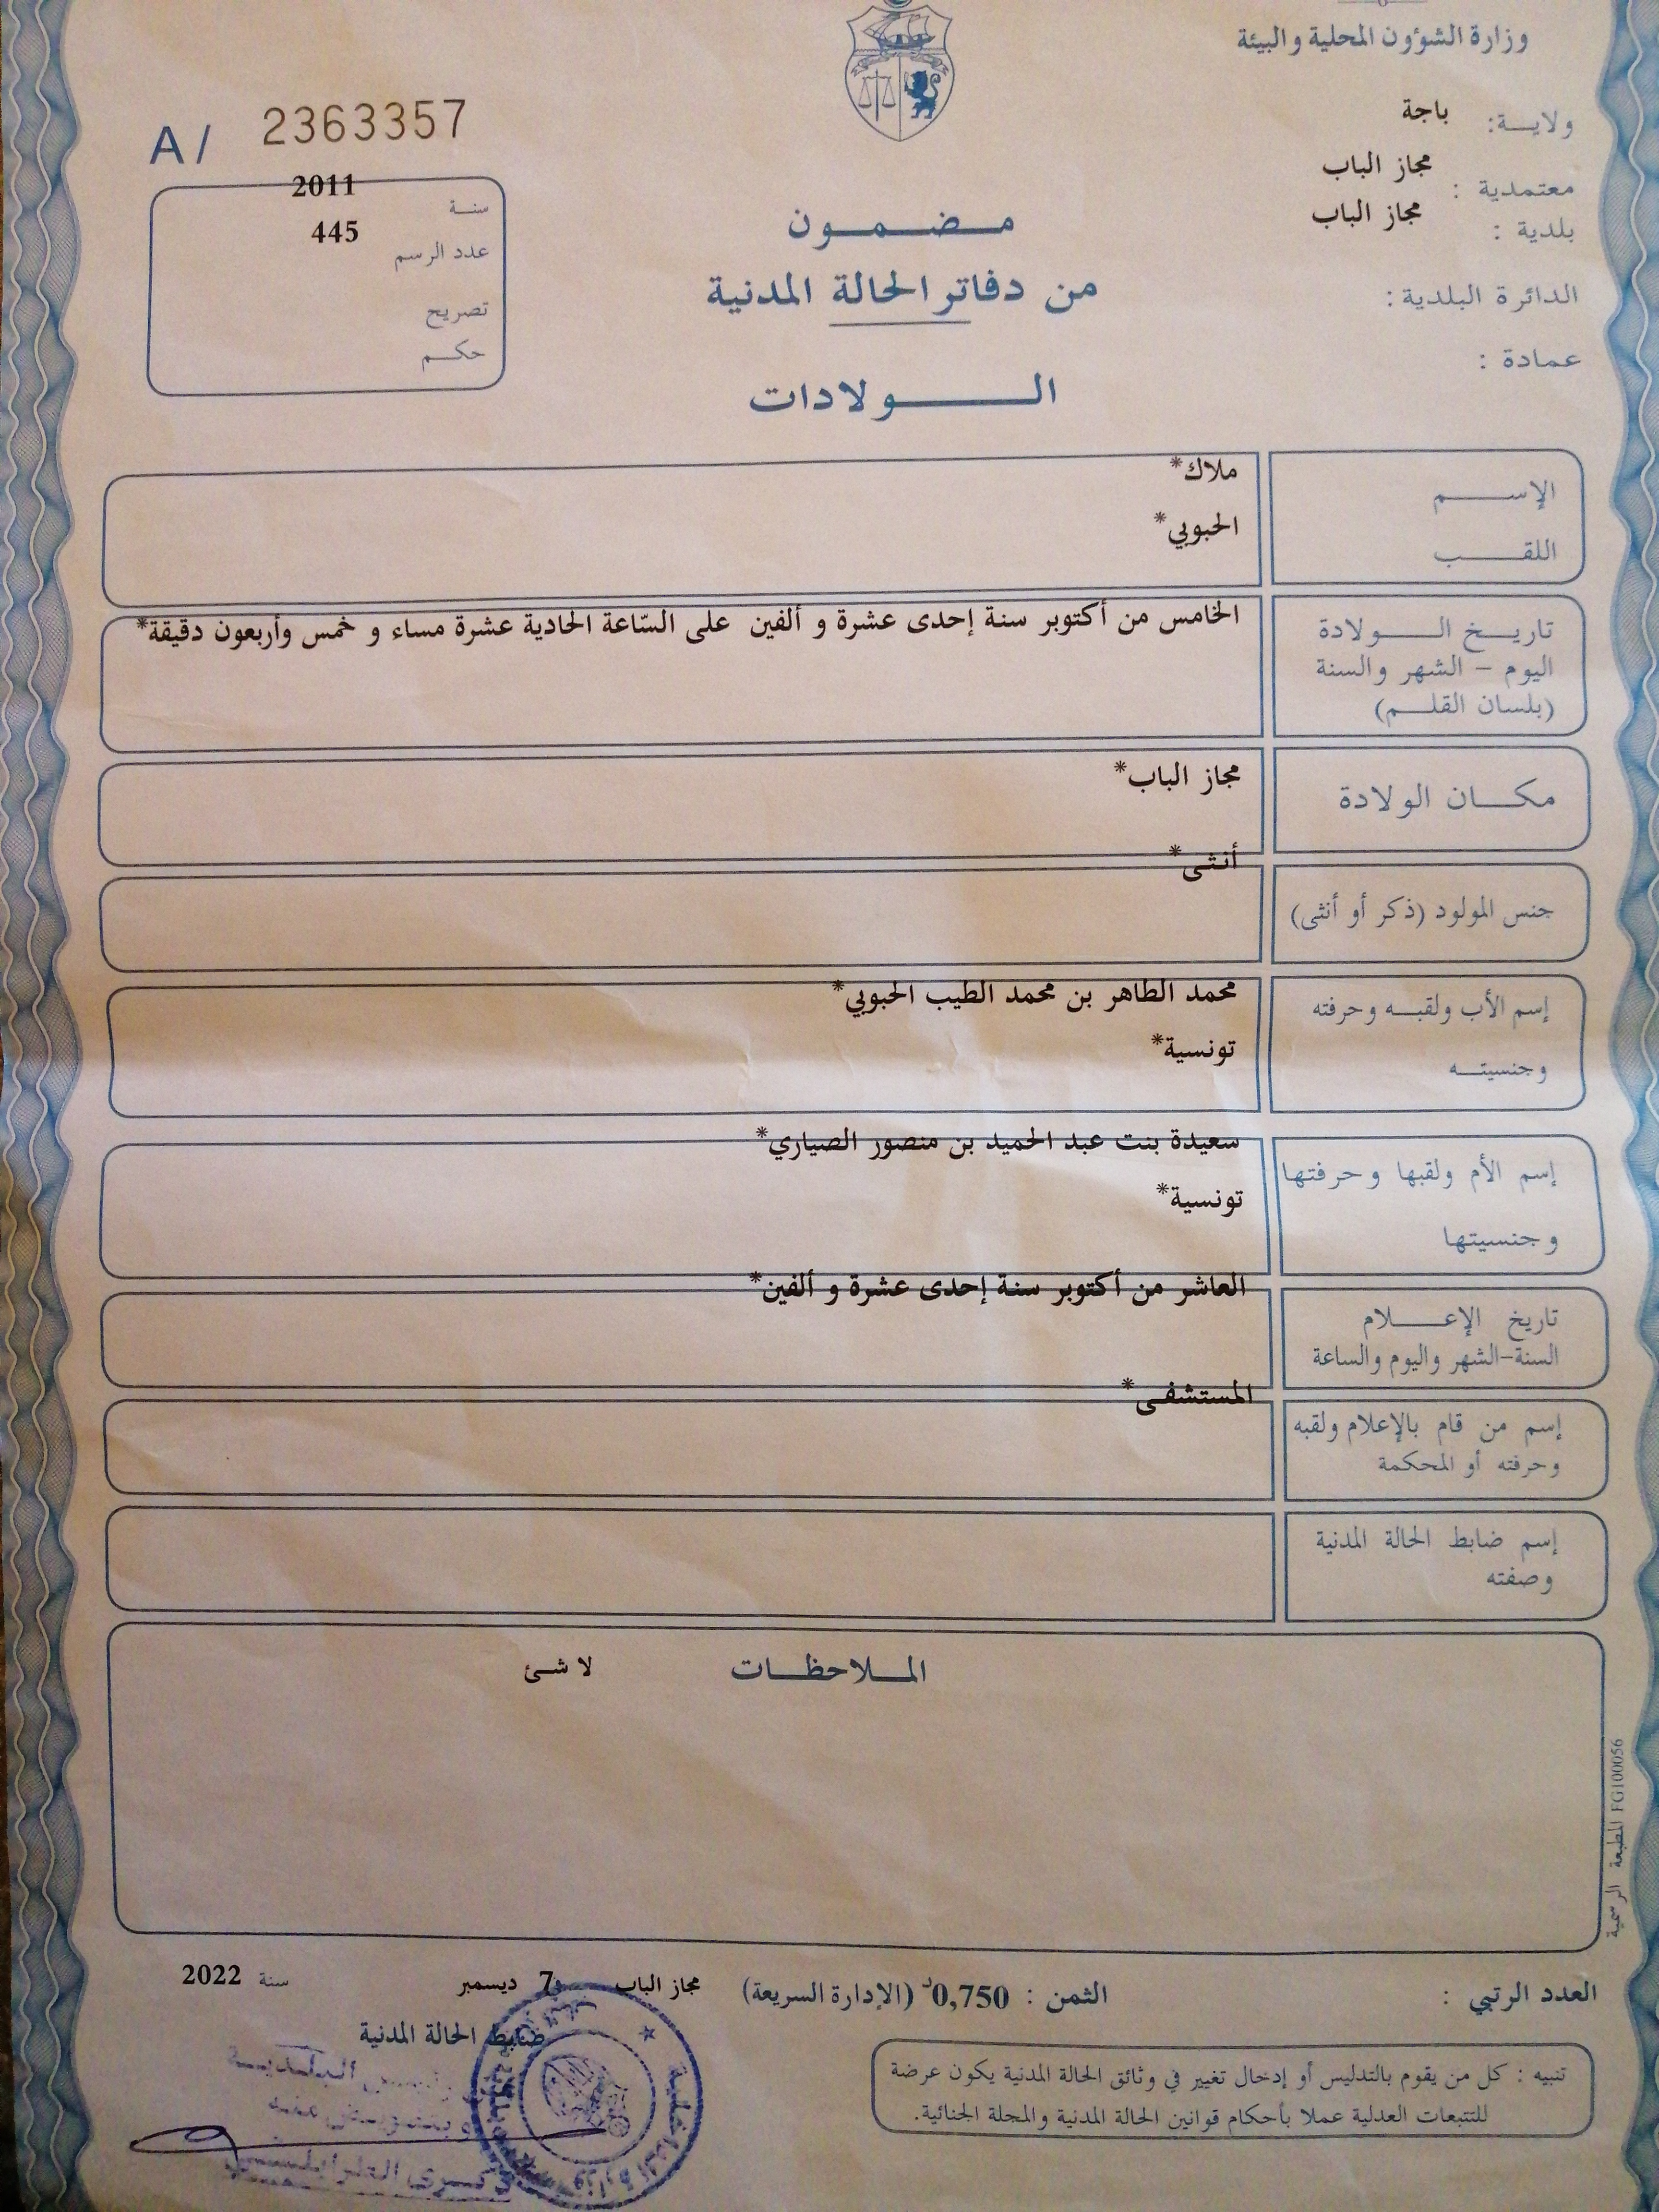 وزارة الشؤون المحلية والبيئة
ولايـــة: باجة
معتمدية : مجاز الباب
بلدية : مجاز الباب
الدائرة البلدية :
عمادة :
A/ 2363357
سنة 2011
عدد الرسم 445
تصريح
حكم
مضمون
من دفاتر الحالة المدنية
الولادات
الإسم ملاك*
اللقب الحبوبي*
تاريخ الولادة
اليوم - الشهر والسنة
(بلسان القلم)
الخامس من أكتوبر سنة إحدى عشرة و ألفين على السّاعة الحادية عشرة مساء و خمس وأربعون دقيقة*
مكان الولادة مجاز الباب*
جنس المولود (ذكر أو أنثى) أنثى*
إسم الأب ولقبه وحرفته محمد الطاهر بن محمد الطيب الحبوبي*
وجنسيته تونسية*
إسم الأم ولقبها وحرفتها سعيدة بنت عبد الحميد بن منصور الصياري*
وجنسيتها تونسية*
تاريخ الإعلام العاشر من أكتوبر سنة إحدى عشرة و ألفين*
السنة-الشهر واليوم والساعة
إسم من قام بالإعلام ولقبه المستشفى*
وحرفته أو المحكمة
إسم ضابط الحالة المدنية
وصفته
الملاحظات لا شئ
المطبعة الرسمية FG100056
العدد الرتبي :
الثمن : 0,750د (الإدارة السريعة)
مجاز الباب 7 ديسمبر سنة 2022
ضابط الحالة المدنية
تنبيه : كل من يقوم بالتدليس أو إدخال تغيير في وثائق الحالة المدنية يكون عرضة
للتتبعات العدلية عملا بأحكام قوانين الحالة المدنية والمجلة الجنائية.